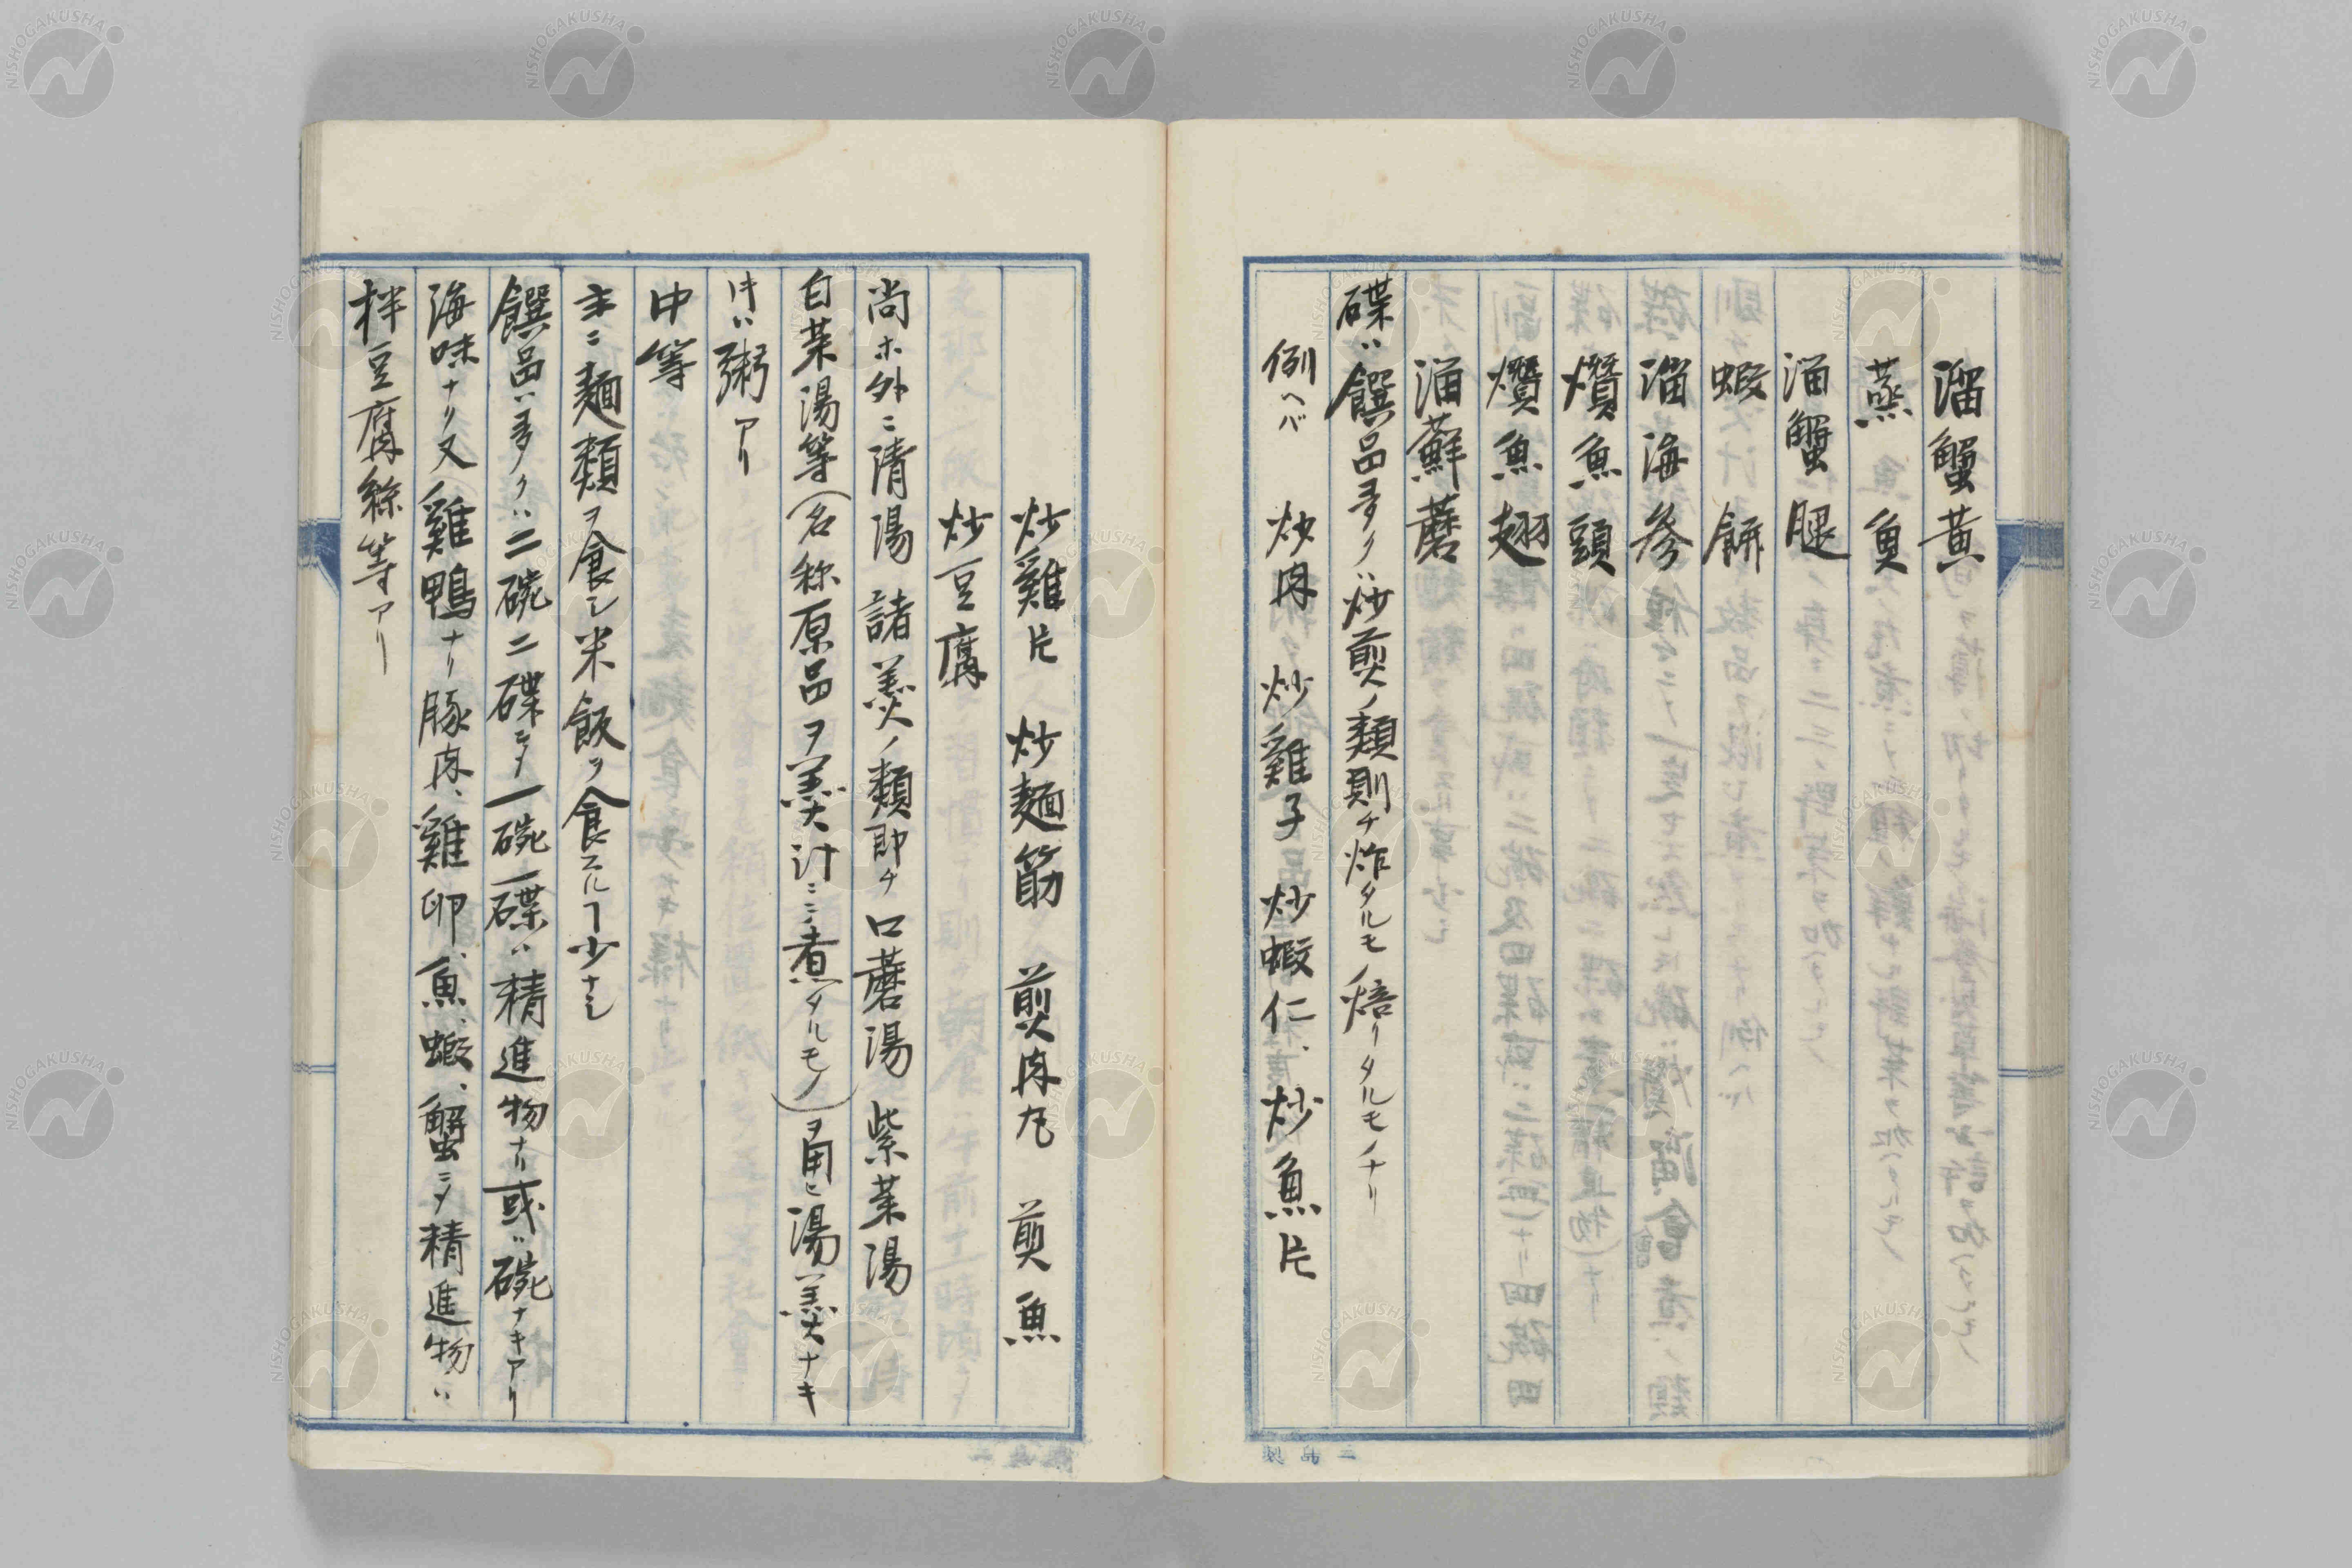 溜蟹黄
蒸魚
溜蟹腿
蝦餅
溜海参
燴魚頭
燴魚翅
溜蘚蘑
碟ハ饌品多クハ炒煎ノ類則チ炸タルモノ焙リタルモノナリ
例ヘバ 炒肉 炒雞子 炒蝦仁、炒魚片
炒雞片 炒麺筋 煎肉丸 煎魚
炒豆腐
尚ホ外ニ清湯 諸羹ノ類即チ口蘑湯 紫菜湯
白菜湯等(名称原品ヲ羹汁ニテ煮タルモノ)ヲ用ヒ湯羹ナキ
トキハ粥アリ
中等
主ニ麺類ヲ食シ米飯ヲ食スルヿ少ナシ
饌品ハ多クハ二碗二碟ニシテ一碗一碟ハ精進物ナリ或ハ碗ナキアリ
海味ナリ又雞鴨ナリ豚肉、雞卵、魚、蝦、蟹ニシテ精進物ハ
拌豆腐絲等アリ
NISHOGAKUSHA